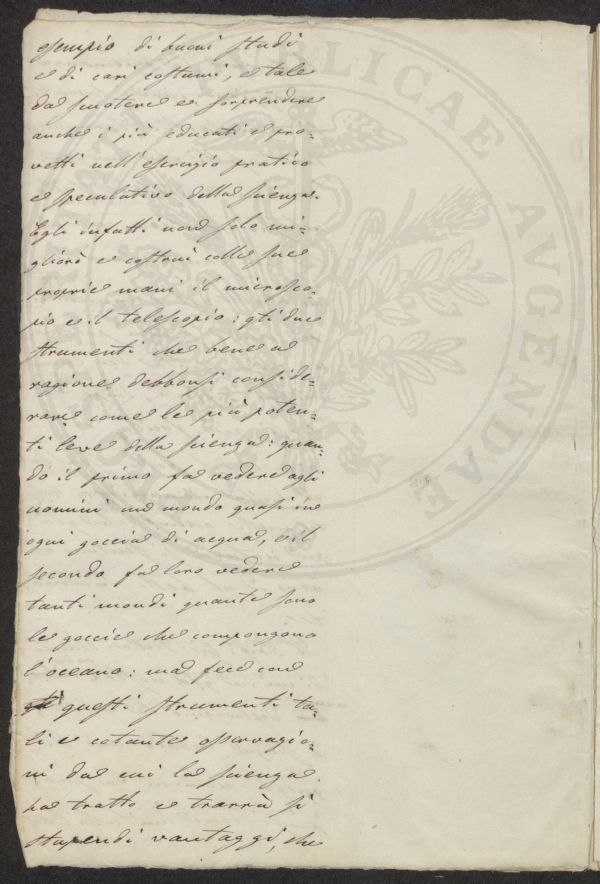 esempio di buoni studi
e di cari costumi, e tale
da scuotere e sorprendere
anche i più educati e pro-
vetti nell'esercizio pratico
e speculativo della scienza.
Egli infatti non solo mi-
gliorò e costruì colle sue
proprie mani il microsco-
pio e il telescopio: gli due
strumenti che bene a
ragione debbonsi conside-
rare come le più poten-
ti leve della scienza: quan-
do il primo fa vedere agli
uomini un mondo quasi in
ogni goccia di acqua, e il
secondo fa loro vedere
tanti mondi quante sono
le goccie che compongono
l'oceano: ma fece con
questi strumenti ta-
li e cotante osservazio-
ni da cui la scienza
ha tratto e trarrà sì
stupendi vantaggi, che
PUBLICAE
AVGENDAE